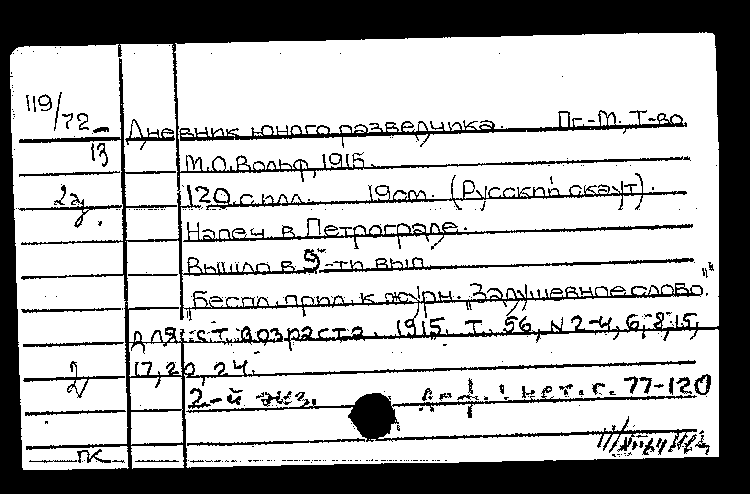 119/72-13
Дневник юного разведчика. Пг.-М., Т-во
М.О.Вольф, 1915.
2э
120 с. илл. 19 см. (Русский скаут).
Напеч. в Петрограде.
Вышло в 5-ти вып.
"Беспл. прил. к журн. "Задушевное слово"
для ст. возраста. 1915. Т. 56, № 2-4, 6, 8, 15,
17, 20, 24.
2-й экз. д-ф.: нет. с. 77-120
ПК